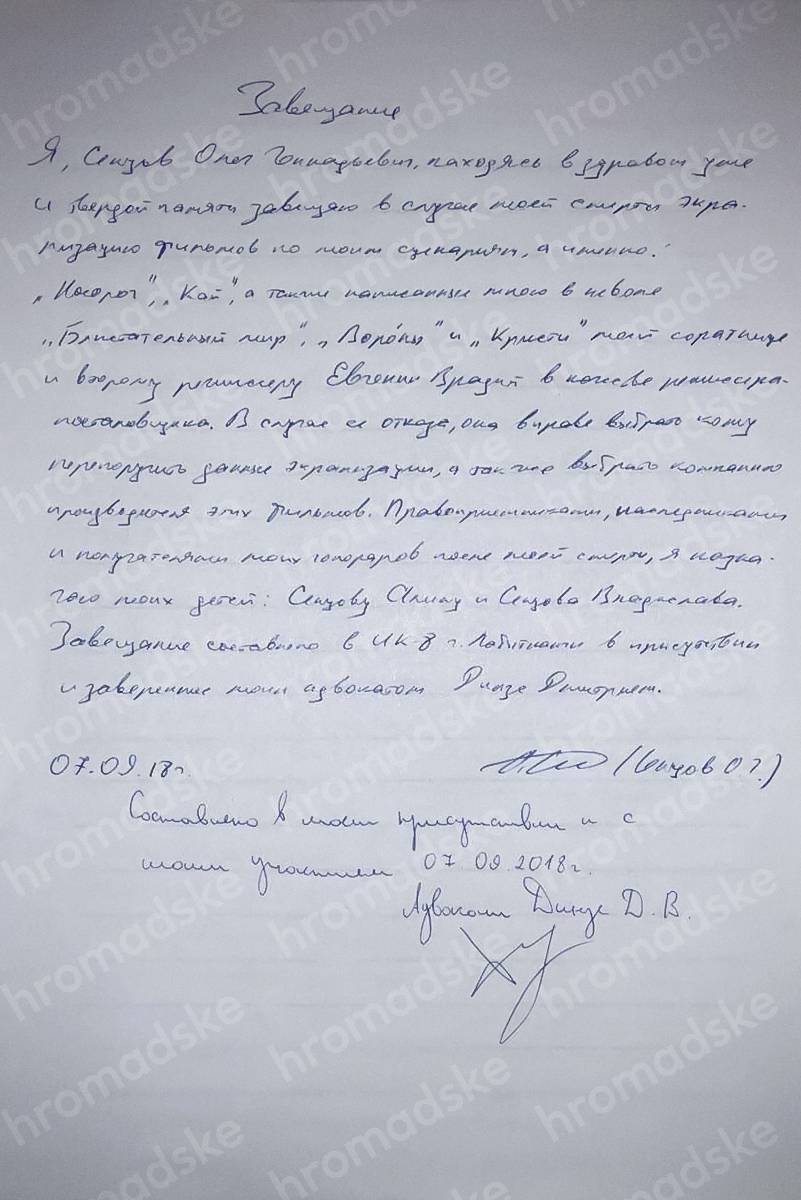 Завещание
Я, Сенцов Олег Геннадьевич, находясь в здравом уме
и твердой памяти завещаю в случае моей смерти экра-
низацию фильмов по моим сценариям, а именно:
„Носорог", „Кай", а также написанные мною в неволе
„Блистательный мир", „Воро́ны" и „Кристи" моей соратнице
и второму режиссеру Евгении Врадий в качестве режиссера-
постановщика. В случае ее отказа, она вправе выбрать кому
перепоручить данные экранизации, а так же выбрать компанию
производителя этих фильмов. Правоприемниками, наследниками
и получателями моих гонораров после моей смерти, я назна-
чаю моих детей: Сенцову Алину и Сенцова Владислава.
Завещание составлено в ИК-8 г. Лабытнанги в присутствии
и заверенное моим адвокатом Динзе Дмитрием.
07.09.18г. (Сенцов О Г.)
Составлено в моем присутствии и с
моим участием 07.09.2018г.
Адвокат Динзе Д. В.
hromadske